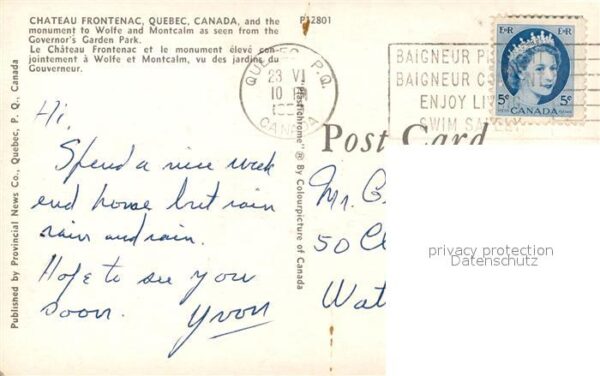 CHATEAU FRONTENAC, QUEBEC, CANADA, and the
monument to Wolfe and Montcalm as seen from the
Governor's Garden Park.
Le Château Frontenac et le monument élevé con-
jointement à Wolfe et Montcalm, vu des jardins du
Gouverneur.
P12801
Hi,
Spend a nice week
end home but rain
rain and rain.
Hope to see you
soon. Yvon
Published by Provincial News Co., Quebec, P. Q., Canada
Plastichrome" ® By Colourpicture of Canada
QUEBEC P.Q.
23 VI
10
CANADA
BAIGNEUR
BAIGNEUR
ENJOY
SWIM
E·R E·R
5c 5c
CANADA
Post Card
Mr.
50
privacy protection
Datenschutz